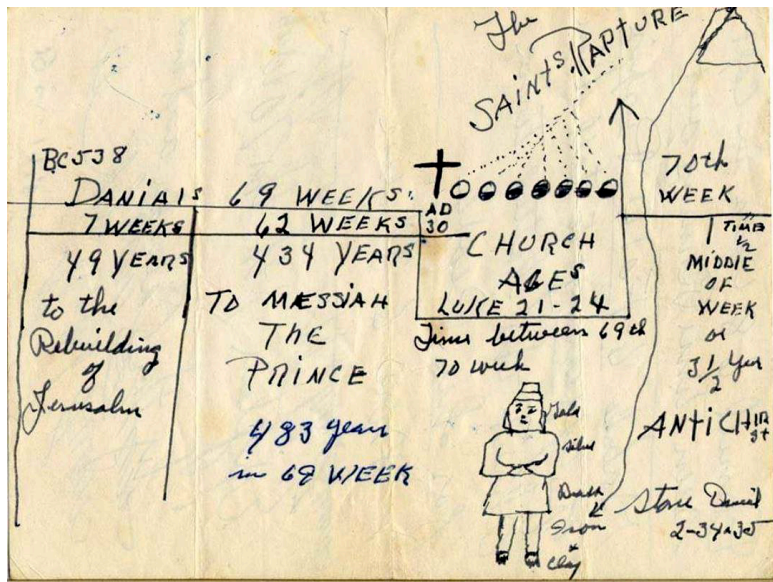 The
SAINTS RAPTURE
BC538
DANIALS 69 WEEKS
7 WEEKS 62 WEEKS
49 YEARS
to the
Rebuilding
of
Jerusalm
434 YEARS
TO MÆSSIAH
THE
PRINCE
483 years
in 69 WEEK
AD
30
CHURCH
AGES
LUKE 21-24
Time between 69th
70 week
70th
WEEK
TIME
1/2
MIDDLE
OF
WEEK
or
3 1/2 Year
ANTICHIR
st
Gold
Silver
Brass
Iron
&
Clay
Stone Danial
2-34&35